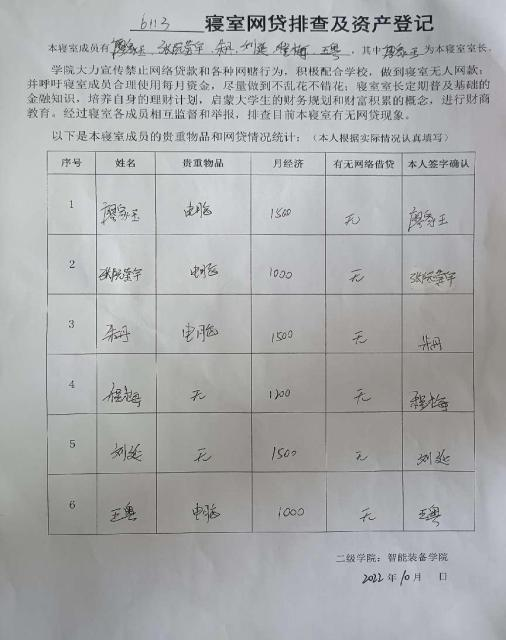 6113 寝室网贷排查及资产登记
本寝室成员有廖家玉、张 宇、 丹、刘延、程梅、王粤,其中廖家玉为本寝室室长。
学院大力宣传禁止网络贷款和各种网赌行为,积极配合学校,做到寝室无人网款;
并呼吁寝室成员合理使用每月资金,尽量做到不乱花不错花;寝室室长定期普及基础的
金融知识,培养自身的理财计划,启蒙大学生的财务规划和财富积累的概念,进行财商
教育。经过寝室各成员相互监督和举报,排查目前本寝室有无网贷现象。
以下是本寝室成员的贵重物品和网贷情况统计:(本人根据实际情况认真填写)
序号 姓名 贵重物品 月经济 有无网络借贷 本人签字确认
1 廖家玉 电脑 1500 无 廖家玉
2 张 宇 电脑 1000 无 张 宇
3 丹 电脑 1500 无 丹
4 程梅 无 1200 无 程梅
5 刘延 无 1500 无 刘延
6 王粤 电脑 1000 无 王粤
二级学院:智能装备学院
2022年10月 日